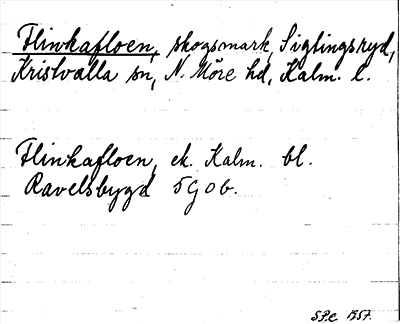 Flinkafloen, skogsmark, Siglingsryd,
Kristvalla sn, N. Möre hd, Kalm. l.
Flinkafloen, ek. Kalm. bl.
Ravelsbygd 5G0b.
1957.